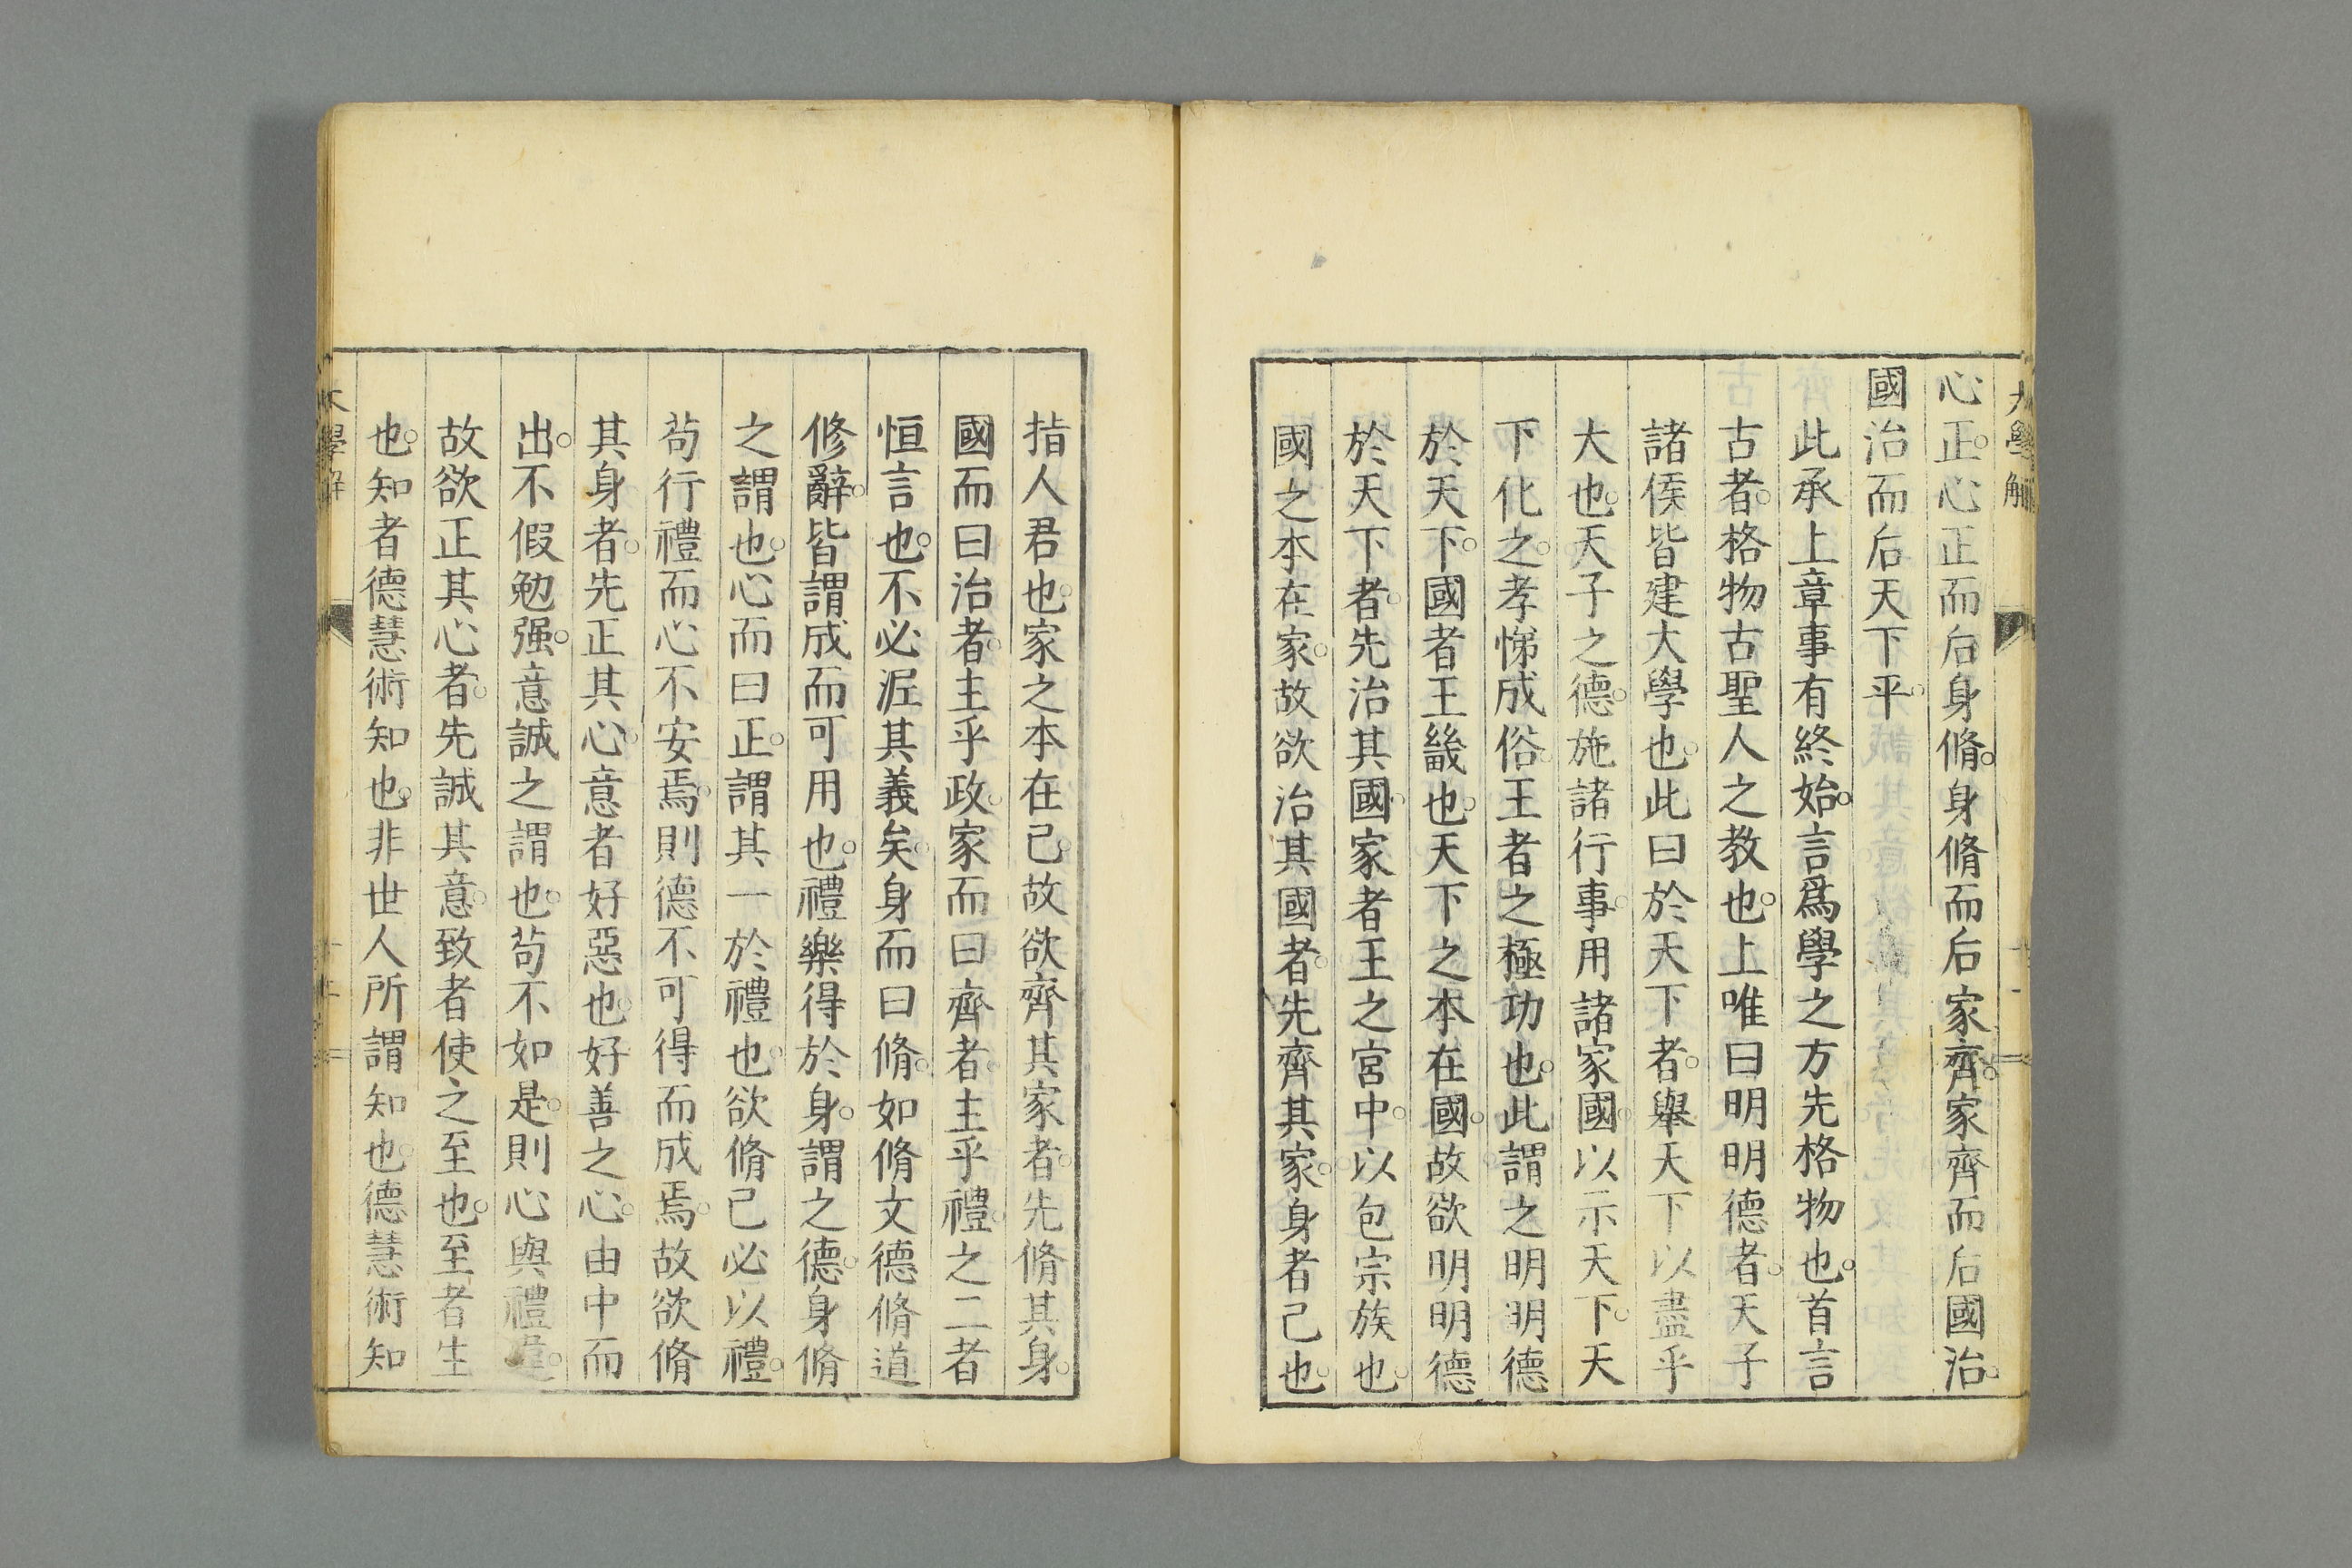 大學解
心正。心正而后身脩。身脩而后家齊。家齊而后國治。
國治而后天下平。
此承上章事有終始。言爲學之方先格物也。首言
古者。格物古聖人之教也。上唯曰明明德者。天子
諸侯皆建大學也。此曰於天下者。舉天下以盡乎
大也。天子之德。施諸行事。用諸家國。以示天下。天
下化之。孝悌成俗。王者之極功也。此謂之明明德
於天下。國者王畿也。天下之本在國。故欲明明德
於天下者。先治其國。家者王之宮中。以包宗族也。
國之本在家。故欲治其國者。先齊其家。身者己也。
指人君也。家之本在己。故欲齊其家者。先脩其身。
國而曰治者。主乎政。家而曰齊者。主乎禮。之二者
恒言也。不必泥其義矣。身而曰脩。如脩文德脩道
修辭。皆謂成而可用也。禮樂得於身。謂之德。身脩
之謂也。心而曰正。謂其一於禮也。欲脩己必以禮。
苟行禮而心不安焉。則德不可得而成焉。故欲脩
其身者。先正其心。意者好惡也。好善之心。由中而
出。不假勉强。意誠之謂也。苟不如是。則心與禮違。
故欲正其心者。先誠其意。致者使之至也。至者生
也。知者德慧術知也。非世人所謂知也。德慧術知
大學解